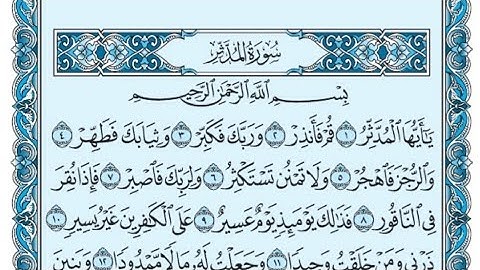 سُورَةُ الْمُدَّثِّرِ
بِسْمِ اللَّهِ الرَّحْمَٰنِ الرَّحِيمِ
يَٰٓأَيُّهَا ٱلْمُدَّثِّرُ ١ قُمْ فَأَنذِرْ ٢ وَرَبَّكَ فَكَبِّرْ ٣ وَثِيَابَكَ فَطَهِّرْ ٤
وَٱلرُّجْزَ فَٱهْجُرْ ٥ وَلَا تَمْنُن تَسْتَكْثِرُ ٦ وَلِرَبِّكَ فَٱصْبِرْ ٧ فَإِذَا نُقِرَ
فِى ٱلنَّاقُورِ ٨ فَذَٰلِكَ يَوْمَئِذٍ يَوْمٌ عَسِيرٌ ٩ عَلَى ٱلْكَٰفِرِينَ غَيْرُ يَسِيرٍ ١٠
ذَرْنِى وَمَنْ خَلَقْتُ وَحِيدًا ١١ وَجَعَلْتُ لَهُۥ مَالًا مَّمْدُودًا ١٢ وَبَنِينَ